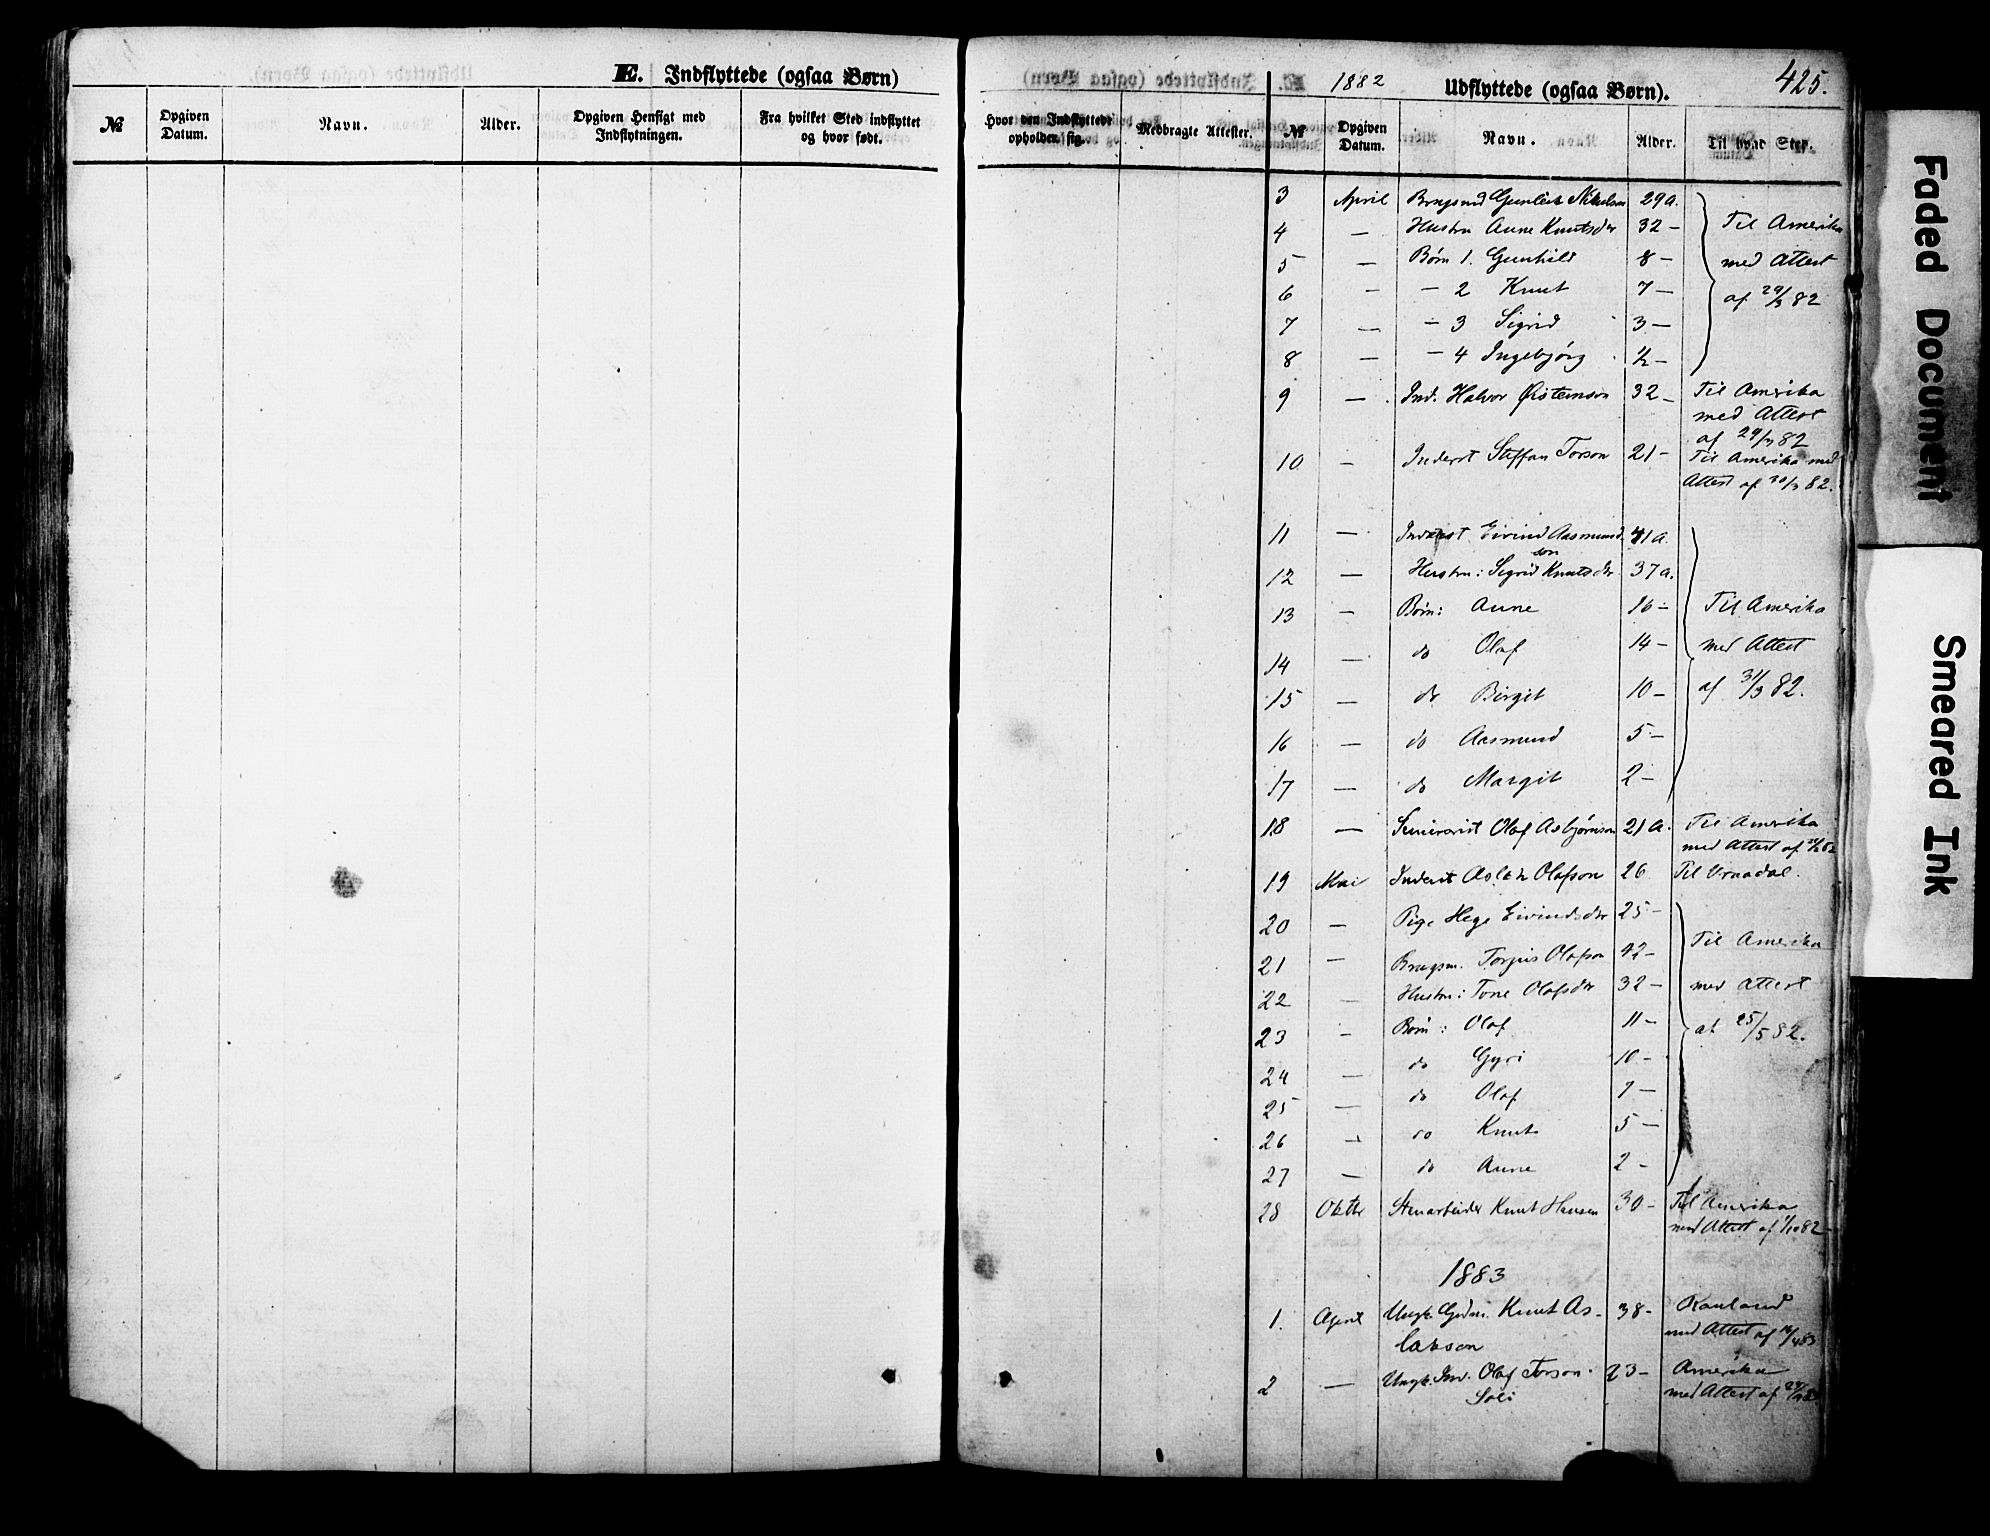 E. Indflyttede (ogsaa Børn)
№ Opgiven Datum. Navn. Alder. Opgiven Hensigt med Indflytningen. Fra hvilket Sted indflyttet og hvor født.
Hvor den Indflyttede opholder sig. Medbragte Attester.
1882 Udflyttede (ogsaa Børn). 425.
№ Opgiven Datum. Navn. Alder. Til hvad Sted.
3 April Brugsmd Gunleik Nikulson 29 a.
4 — Hustru Anne Knutsdr 32 — Til Amerika
5 — Børn 1. Gunhild 8 — med Attest
6 — — 2 Knut 7 — af 29/3 82
7 — — 3 Sigrid 3 —
8 — — 4 Ingebjørg ½ —
9 — Ind. Halvor Øistenson 32 — Til Amerika
med Attest
af 29/3 82
10 — Inderst Steffan Torson 21 — Til Amerika med
Attest af 30/3 82.
11 — Inderst Eivind Aasmundson 41 a.
12 — Hustru: Sigrid Knutsdr 37 a.
13 — Børn: Anne 16 — Til Amerika
14 — do Olaf 14 — med Attest
15 — do Birgit 10 — af 31/3 82.
16 — do Aasmund 5 —
17 — do Margit 2 —
18 — Olaf Asbjørnson 21 a. Til Amerika
med Attest af
19 Mai Inderst Aslak Olafson 26 Til Vraadal.
20 — Pige Hege Eivindsdr 25 —
21 — Brugsm. Torjus Olafson 42 — Til Amerika
22 — Hustru: Tone Olafsdr 32 — med Attest
23 — Børn: Olaf 11 — af 25/5 82.
24 — do Gyri 10 —
25 — do Olaf 7 —
26 — do Knut 5 —
27 — do Anne 2 —
28 Oktbr Stenarbeider Knut Hansen 30 — Til Amerika
med Attest af 1/10 82
1883
1. April Ungk. Gdm. Knut As- 38 — Rauland
lakson med Attest af 16/4 83
2 — Ungk. Ind. Olaf Torson 23 — Amerika
Soli med Attest af
Faded Document
Smeared Ink